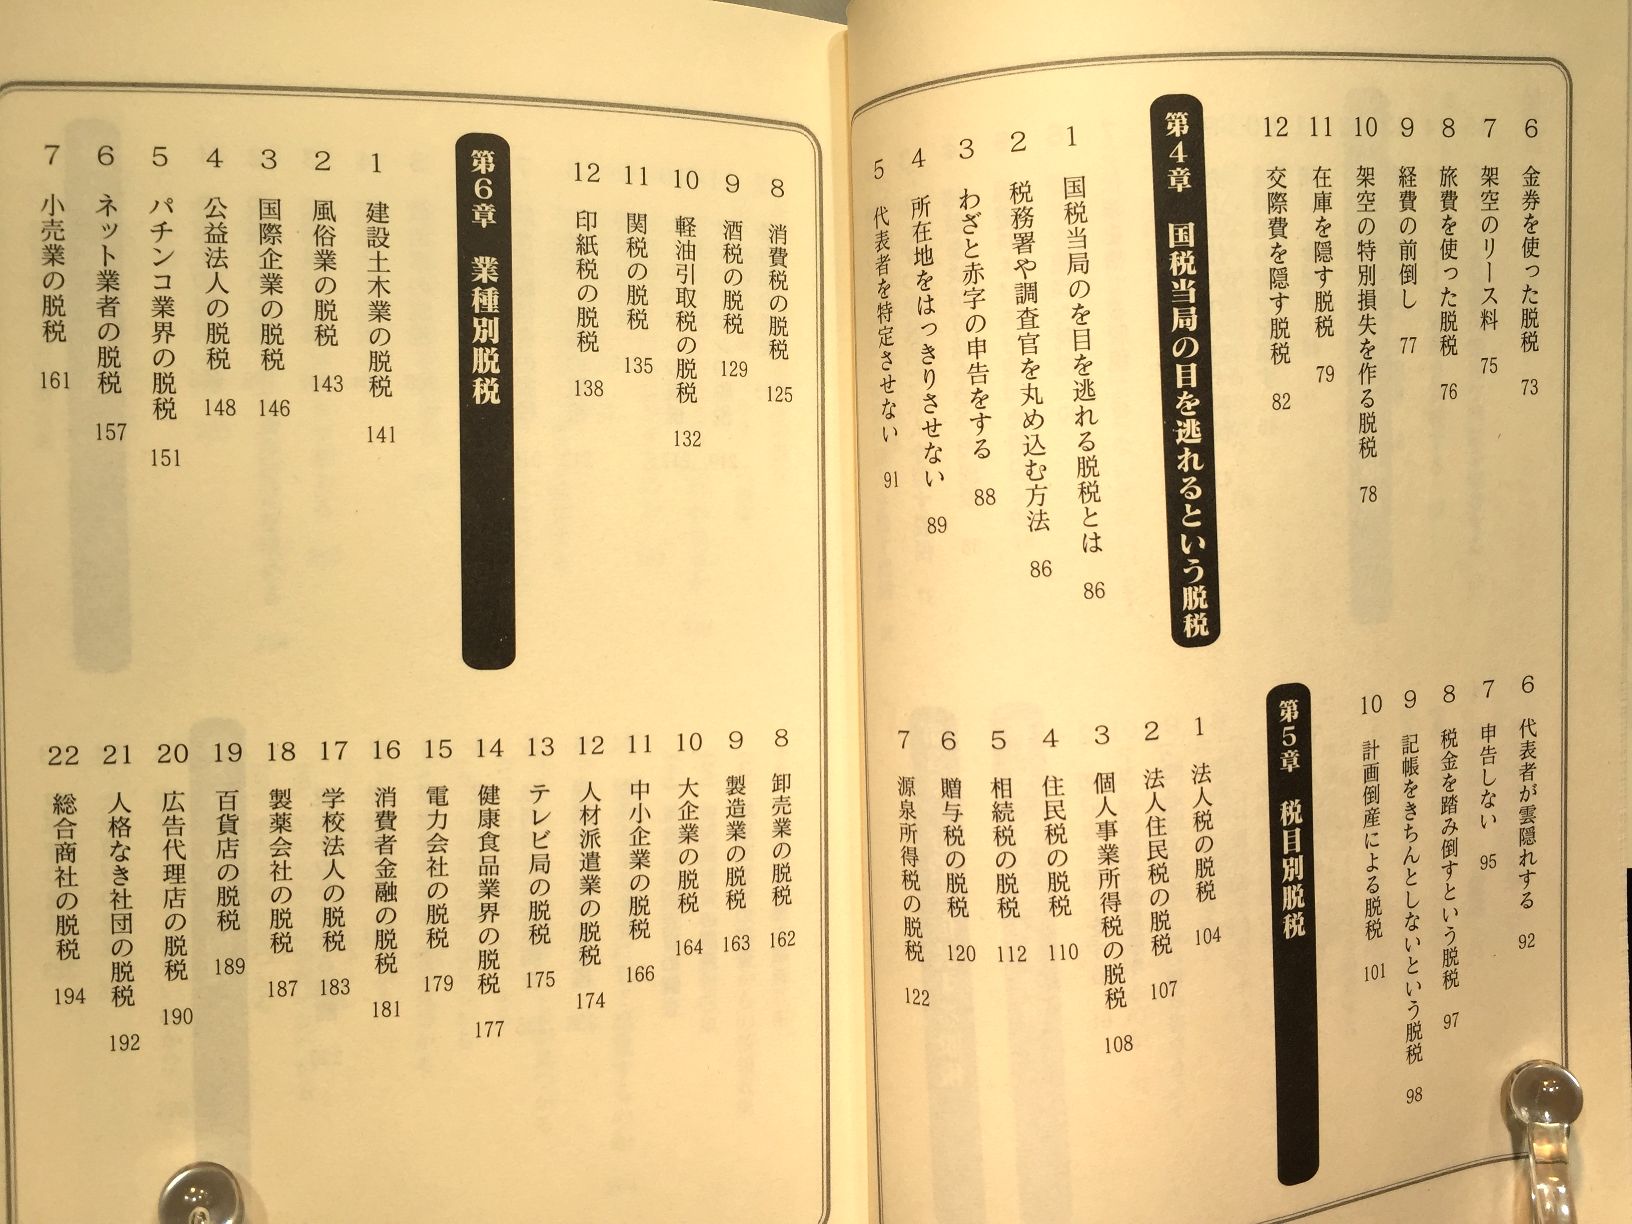 6 金券を使った脱税 73
7 架空のリース料 75
8 旅費を使った脱税 76
9 経費の前倒し 77
10 架空の特別損失を作る脱税 78
11 在庫を隠す脱税 79
12 交際費を隠す脱税 82
第4章 国税当局の目を逃れるという脱税
1 国税当局のを目を逃れる脱税とは 86
2 税務署や調査官を丸め込む方法 86
3 わざと赤字の申告をする 88
4 所在地をはっきりさせない 89
5 代表者を特定させない 91
6 代表者が雲隠れする 92
7 申告しない 95
8 税金を踏み倒すという脱税 97
9 記帳をきちんとしないという脱税 98
10 計画倒産による脱税 101
第5章 税目別脱税
1 法人税の脱税 104
2 法人住民税の脱税 107
3 個人事業所得税の脱税 108
4 住民税の脱税 110
5 相続税の脱税 112
6 贈与税の脱税 120
7 源泉所得税の脱税 122
8 消費税の脱税 125
9 酒税の脱税 129
10 軽油引取税の脱税 132
11 関税の脱税 135
12 印紙税の脱税 138
第6章 業種別脱税
1 建設土木業の脱税 141
2 風俗業の脱税 143
3 国際企業の脱税 146
4 公益法人の脱税 148
5 パチンコ業界の脱税 151
6 ネット業者の脱税 157
7 小売業の脱税 161
8 卸売業の脱税 162
9 製造業の脱税 163
10 大企業の脱税 164
11 中小企業の脱税 166
12 人材派遣業の脱税 174
13 テレビ局の脱税 175
14 健康食品業界の脱税 177
15 電力会社の脱税 179
16 消費者金融の脱税 181
17 学校法人の脱税 183
18 製薬会社の脱税 187
19 百貨店の脱税 189
20 広告代理店の脱税 190
21 人格なき社団の脱税 192
22 総合商社の脱税 194